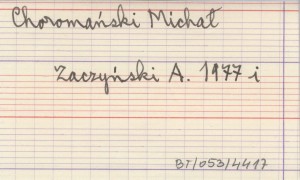 Choromański Michał
Zaczyński A. 1977 i
BT/053/4417